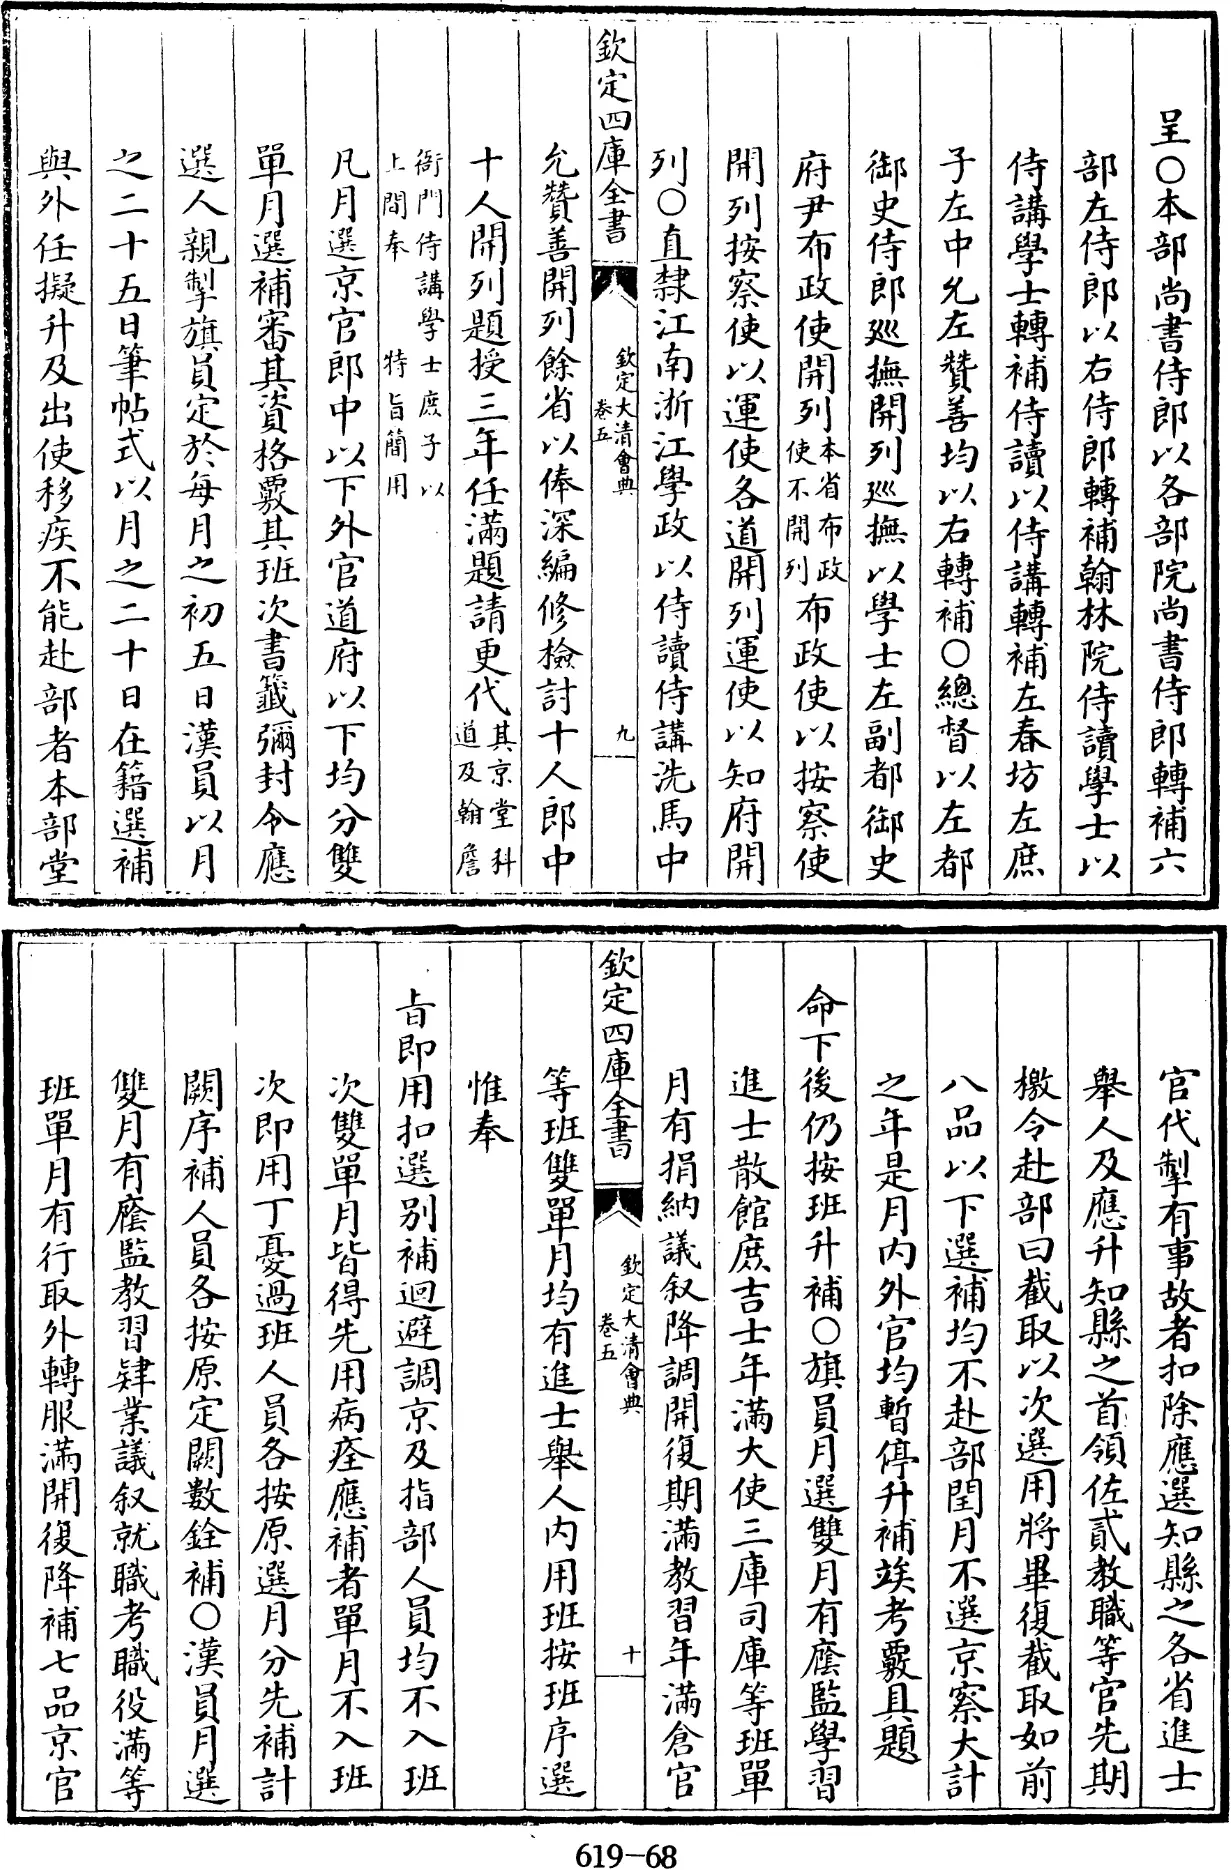 呈○本部尚書侍郎以各部院尚書侍郎轉補六
部左侍郎以右侍郎轉補翰林院侍讀學士以
侍講學士轉補侍讀以侍講轉補左春坊左庶
子左中允左贊善均以右轉補○總督以左都
御史侍郎廵撫開列廵撫以學士左副都御史
府尹布政使開列本省布政使不開列布政使以按察使
開列按察使以運使各道開列運使以知府開
列○直隸江南浙江學政以侍讀侍講洗馬中
欽定四庫全書
欽定大清會典
卷五
九
允贊善開列餘省以俸深編修檢討十人郎中
十人開列題授三年任滿題請更代其京堂科道及翰詹
衙門侍講學士庶子以
上間奉 特旨簡用
凡月選京官郎中以下外官道府以下均分雙
單月選補審其資格覈其班次書籤彌封令應
選人親掣旗員定於每月之初五日漢員以月
之二十五日筆帖式以月之二十日在籍選補
與外任擬升及出使移疾不能赴部者本部堂
官代掣有事故者扣除應選知縣之各省進士
舉人及應升知縣之首領佐貳教職等官先期
檄令赴部曰截取以次選用將畢復截取如前
八品以下選補均不赴部閏月不選京察大計
之年是月内外官均暫停升補竢考覈具題
命下後仍按班升補○旗員月選雙月有廕監學習
進士散館庶吉士年滿大使三庫司庫等班單
月有捐納議叙降調開復期滿教習年滿倉官
欽定四庫全書
欽定大清會典
卷五
十
等班雙單月均有進士舉人内用班按班序選
惟奉
旨即用扣選别補迴避調京及指部人員均不入班
次雙單月皆得先用病痊應補者單月不入班
次即用丁憂過班人員各按原選月分先補計
闕序補人員各按原定闕數銓補○漢員月選
雙月有廕監教習肄業議叙就職考職役滿等
班單月有行取外轉服滿開復降補七品京官
619-68